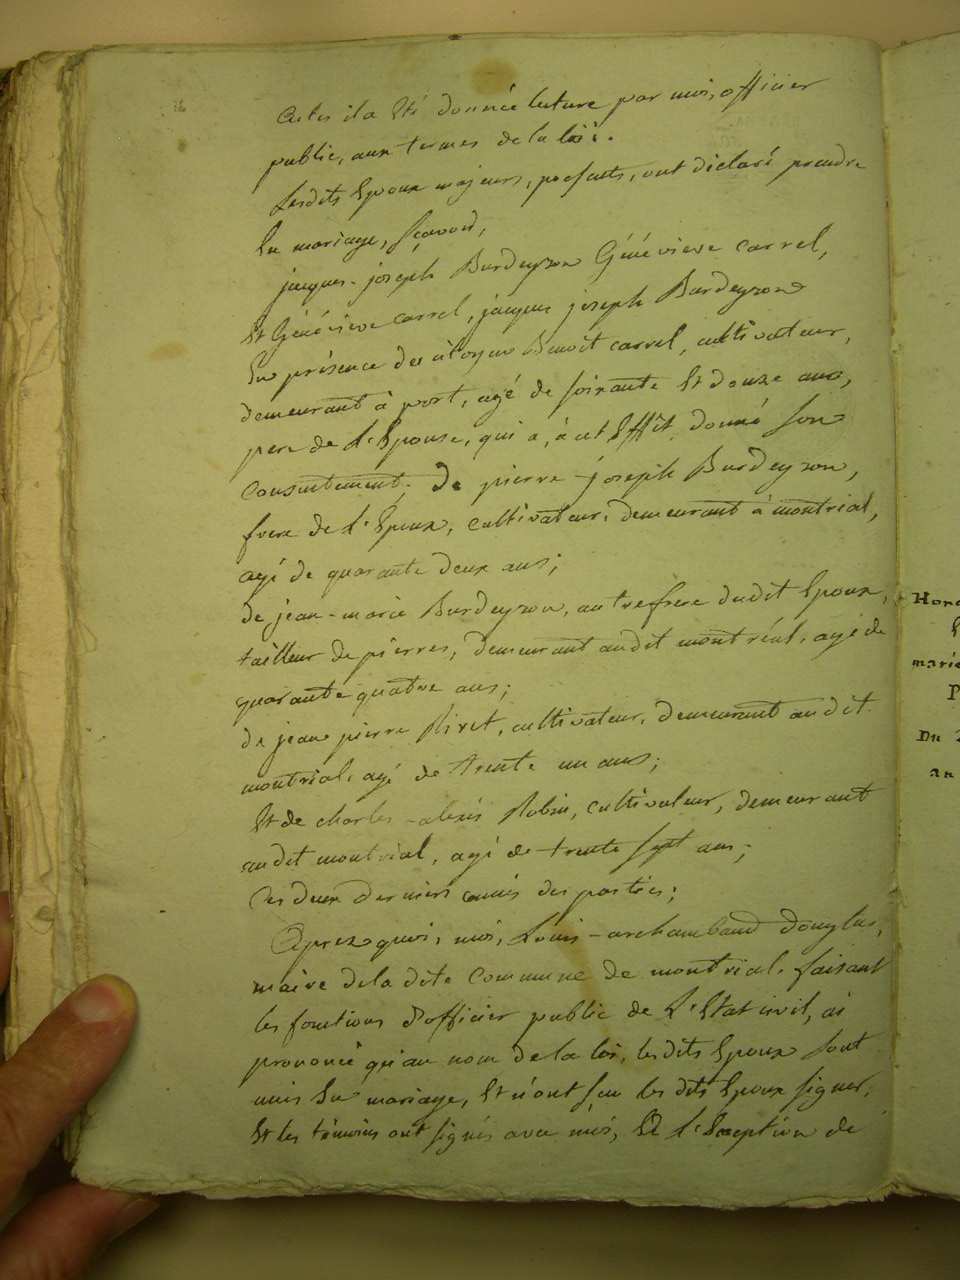 actes il a Eté donnée lecture par moi, officier
public, aux termes de la loi.
Lesdits Epoux majeurs, presents, ont déclaré prendre
En mariage, sçavoir,
jacques-joseph Burdeyron Généviève Carrel,
Et Généviève Carrel, jacques joseph Burdeyron
En présence des citoyens Benoit Carrel, cultivateur,
demeurant à port, agé de soixante Et douze ans,
pere de L'Epouse, qui a, à cet Effêt, donné son
consentement; De pierre joseph Burdeyron,
frere de l'Epoux, cultivateur, demeurant à montréal,
agé de quarante deux ans;
de jean-marie Burdeyron, autre frere dudit Epoux,
tailleur de pierres, demeurant audit montréal, agé de
quarante quatre ans;
de jean pierre Rivet, cultivateur, demeurant audit
montréal, agé de trente un ans;
Et de charles-alexis Robin, cultivateur, demeurant
audit montréal, agé de trente sept ans;
Ces deux derniers amis des parties;
Aprez quoi, moi, Louis-archambaud Douglas,
maire de la dite Commune de montréal, faisant
les fonctions d'officier public de L'Etat civil, ai
prononcé qu'au nom de la loi, lesdits Epoux sont
unis En mariage, Et n'ont sçu les dits Epoux signer,
Et les témoins ont signés avec moi, à L'Exception de
marie
Du
an